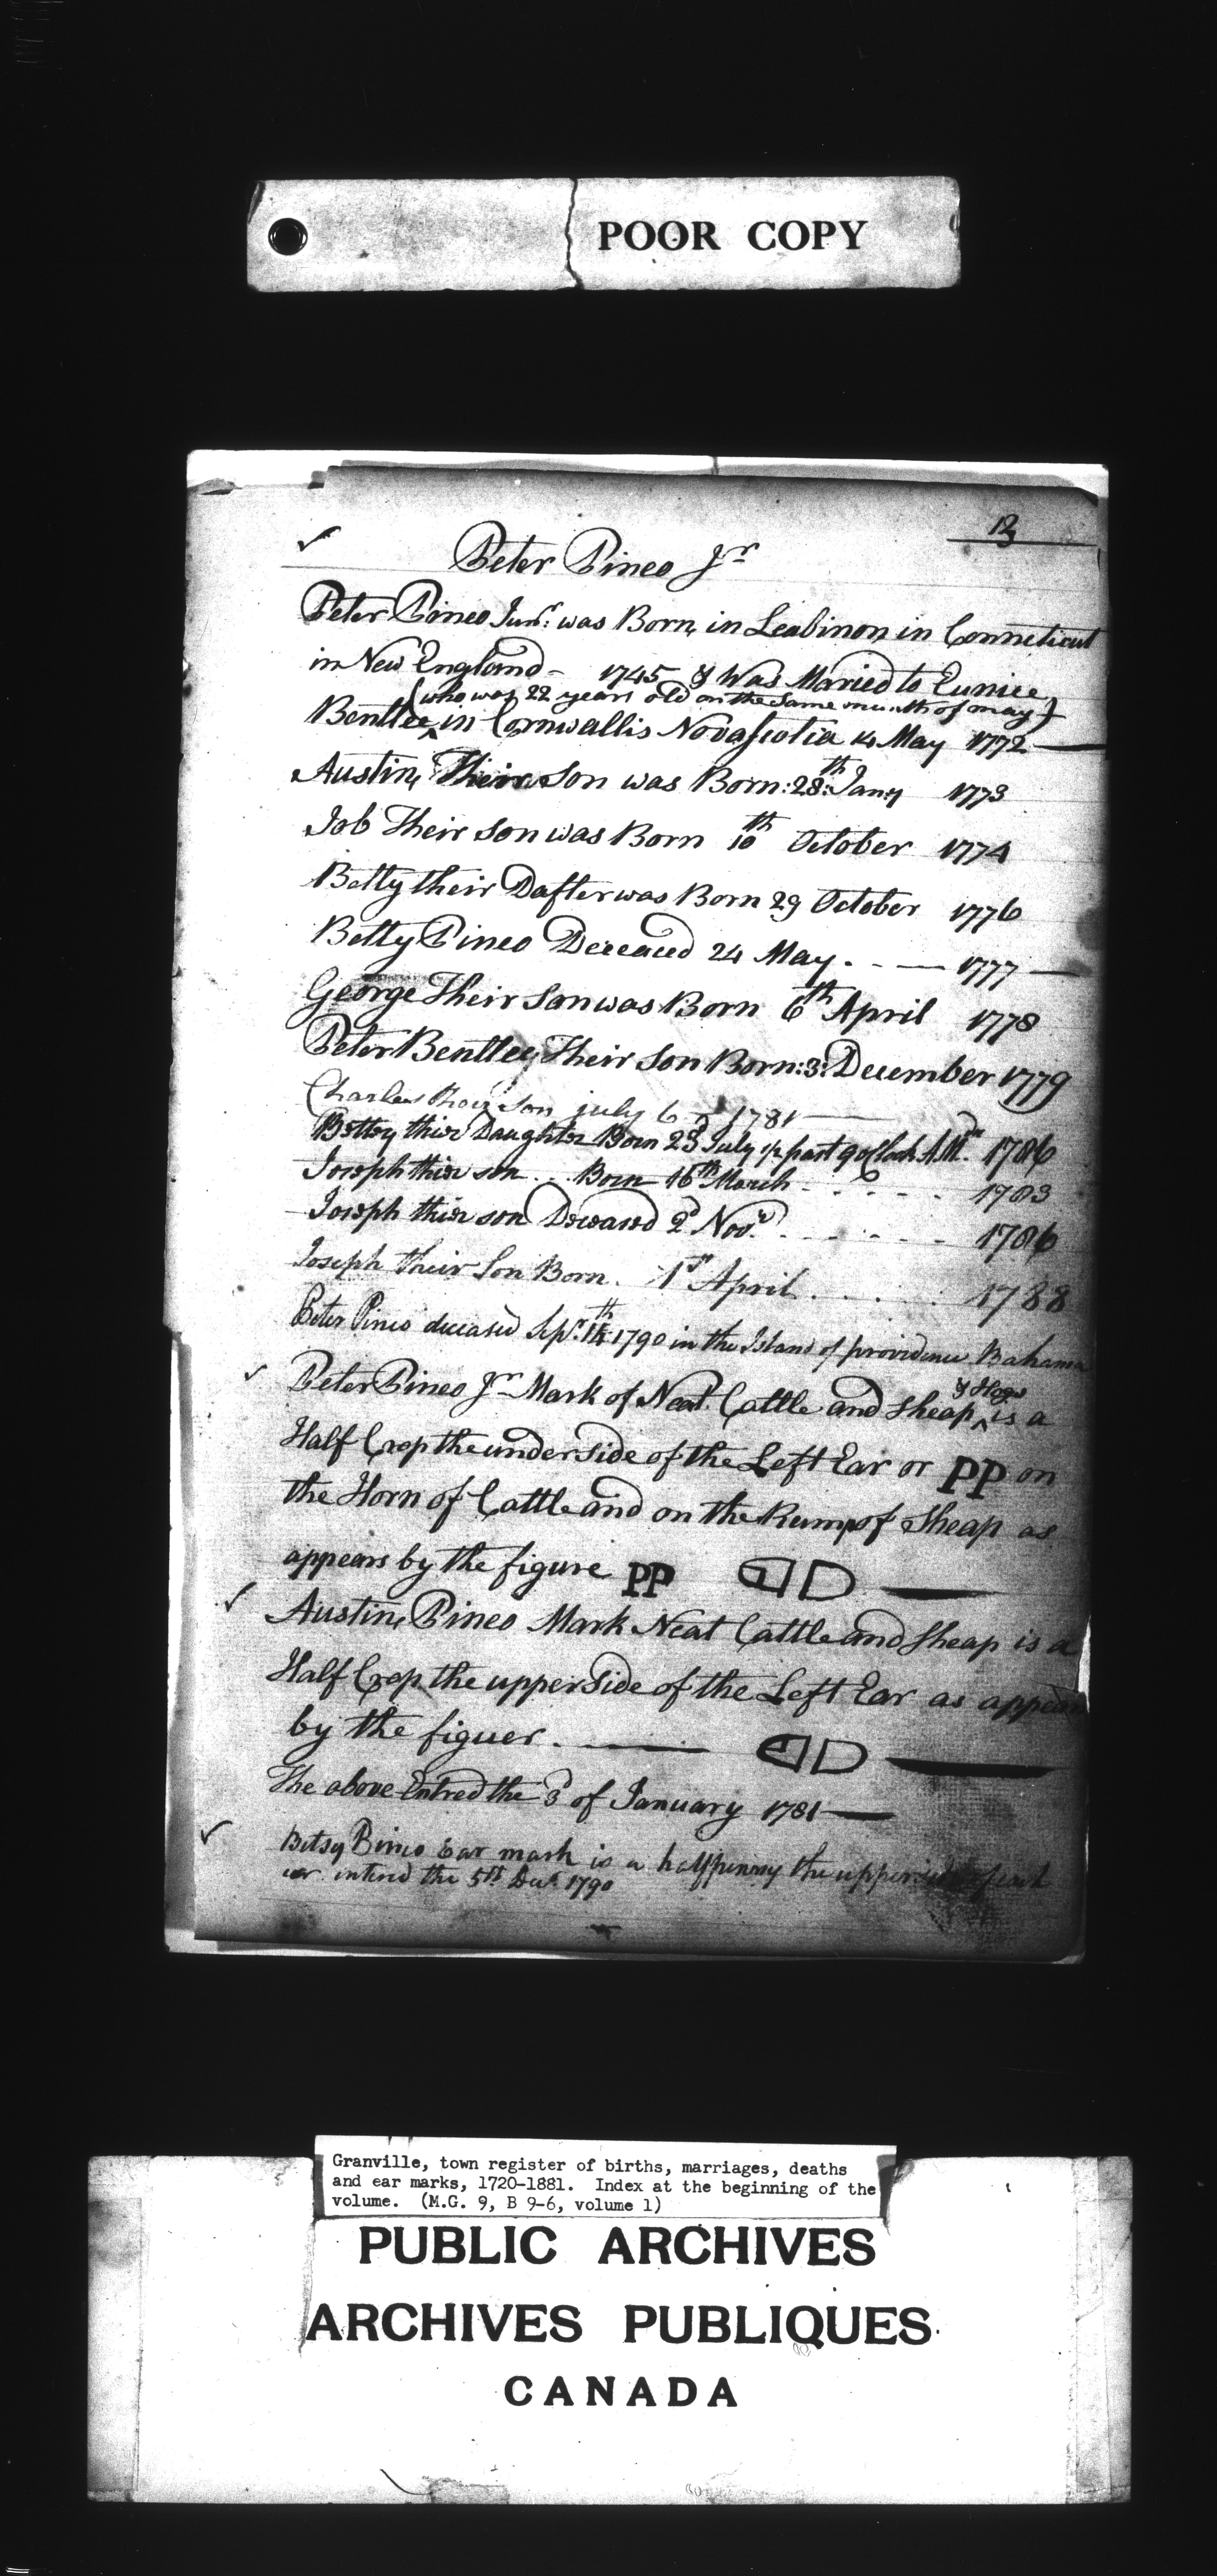 POOR COPY
13
Peter Pineo Jr
Peter Pineo Junr: was Born, in Leabinon in Conneticut
in New England - 1745 & Was Maried to Eunice
(who was 22 years old on the same month of may)
Bentlee in Cornwallis Novascotia 14 May 1772
Austin, Their Son was Born: 28:th Jany 1773
Job Their Son was Born 10th October 1774
Betty their Dafter was Born 29 October 1776
Betty Pineo Deceaced 24 May. - - — 1777 —
George Their Son was Born 6th April 1778
Peter Bentlee, Their Son Born: 3: December 1779
Charles son july 6 1781
Bettey thier Daughter Born 23d July 1/2 past 9 oClock A.M. 1786
Joseph thier son .. Born 16th March - . . - . . 1783
Joseph thier son Deceased 2d Novr. . - . . - . - 1786
Joseph their Son Born. 1st April . . . . . 1788
Peter Pineo deceased Sepr. 1790 in the Island of providence Bahama
& Hogs
Peter Pineo Jr Mark of Neat Cattle and Sheap is a
Half Crop the under Side of the Left Ear or PP on
the Horn of Cattle and on the Rump of Sheap as
appears by the figure PP
Austin, Pineo Mark Neat Cattle and Sheap is a
Half Crop the upper Side of the Left Ear as appear
by the figuer.
The above Entred the 3d of January 1781
Betsy Pineo Ear mark is a halfpenny the upper side of each
ear. intered the 5th Decr. 1790
Granville, town register of births, marriages, deaths
and ear marks, 1720-1881. Index at the beginning of the
volume. (M.G. 9, B 9-6, volume 1)
PUBLIC ARCHIVES
ARCHIVES PUBLIQUES
CANADA